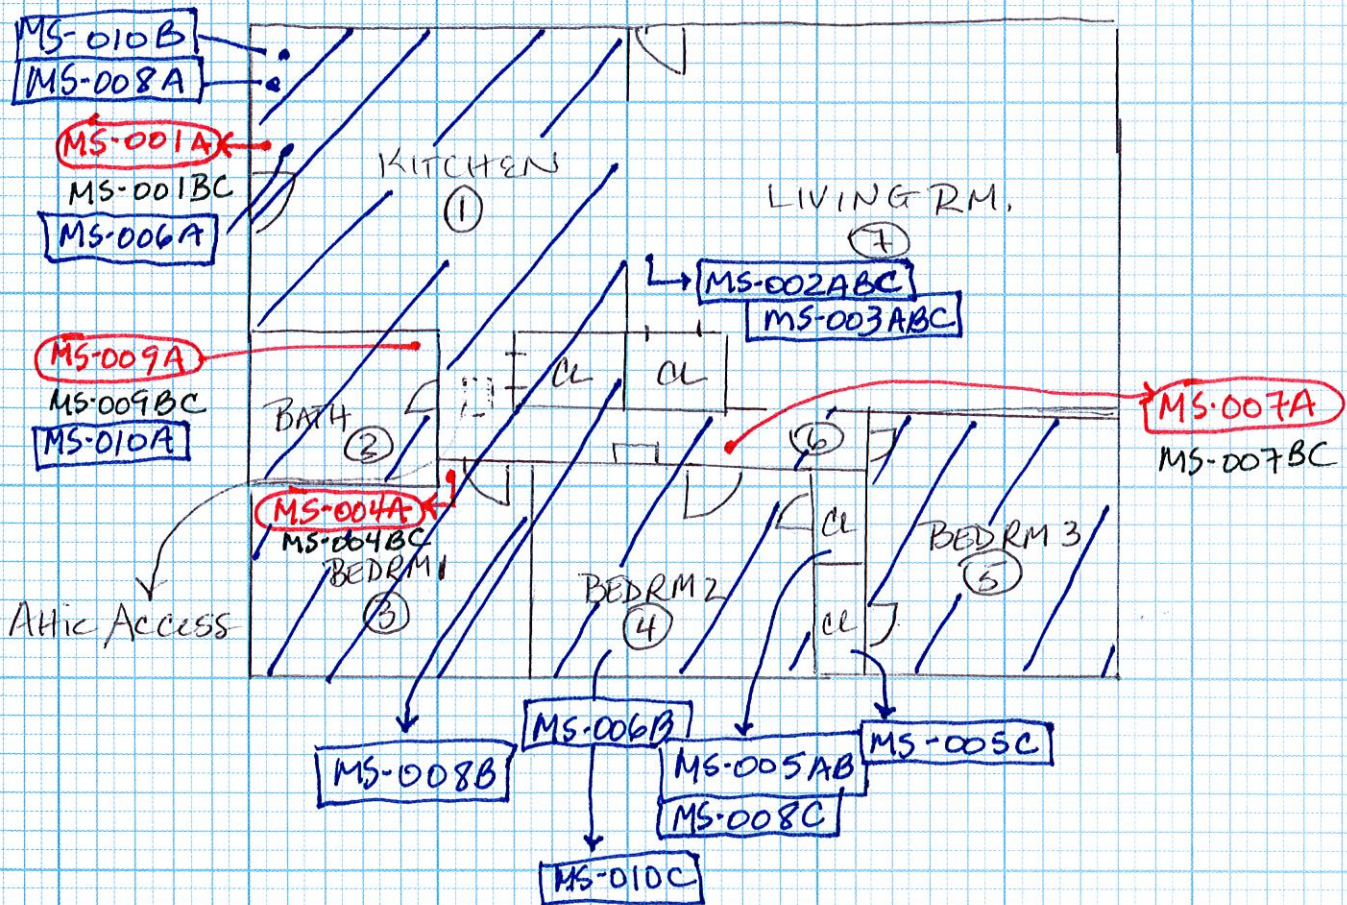 MS-010B
MS-008A
MS-001A
MS-001BC
MS-006A
KITCHEN
1
LIVING RM.
7
MS-002ABC
MS-003ABC
MS-009A
MS-009BC
MS-010A
BATH
2
CL
CL
6
MS-007A
MS-007BC
MS-004A
MS-004BC
BEDRM 1
3
BEDRM 2
4
CL
CL
BEDRM 3
5
Attic Access
MS-008B
MS-006B
MS-010C
MS-005AB
MS-008C
MS-005C